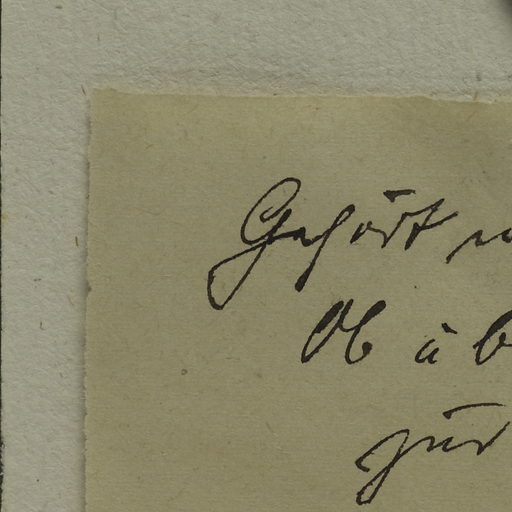 Gehört
Ob üb
zur